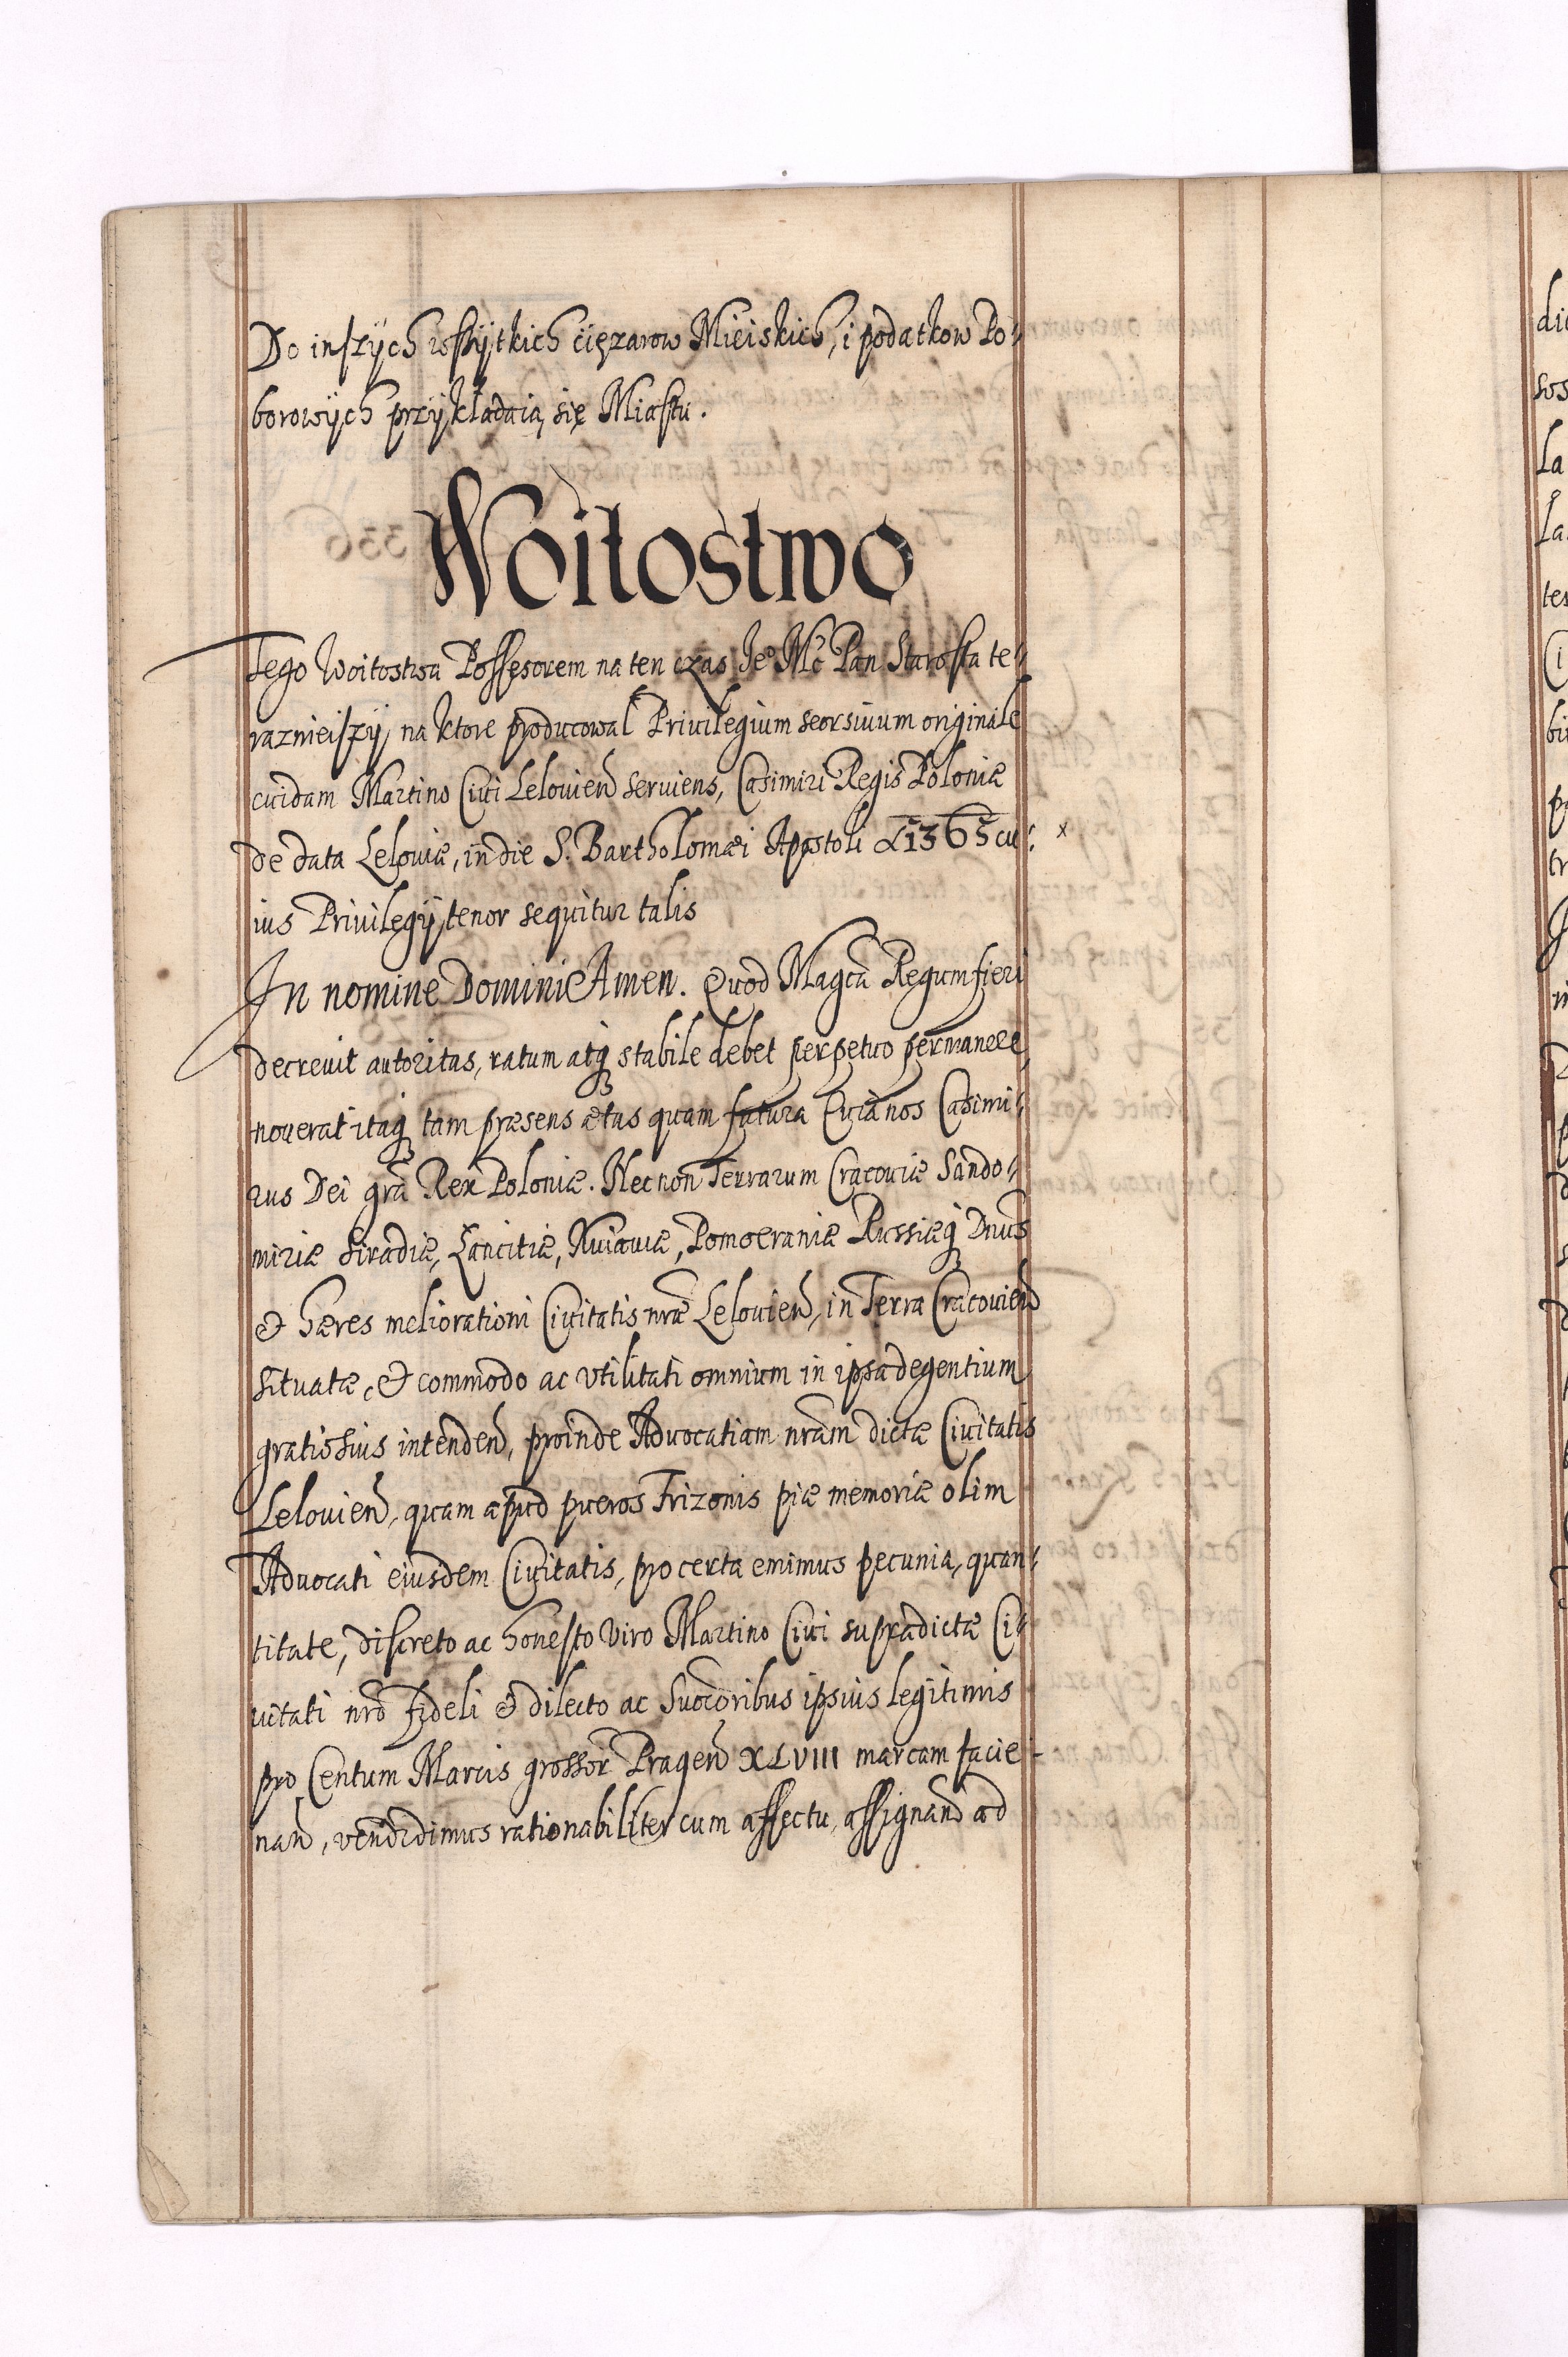 Do inszÿch wszÿtkich cięzarow Mieiskich, i podatkow Po-
borowÿch przÿkładaią się Miastu.
Woitostwo
Tego Woitostwa Possessorem na ten czas Jeo Mć Pan Starosta te-
raznieiszÿ, na ktore producował Privilegium seorsiuum originale
cuidam Martino Ciui Lelouien seruiens, Casimiri Regis Poloniæ
de data Leloviæ, in die S. Bartholomæi Apostoli A 1365 cu- x
ius Privilegÿ tenor sequitur talis
In nomine Domini Amen. Quod Magca Regum fieri
decreuit autoritas, ratum atq stabile debet perpetuo permanere
nouerat itaq tam præsens ætas quam futura Quia nos Casimi-
rus Dei gra Rex Poloniæ. Necnon Terrarum Cracoviæ Sando-
miriæ Siradiæ, Lancitiæ, Kuiauiæ, Pomoeraniæ Russiæq Dnus
& hæres meliorationi Ciuitatis nræ Lelouien, in Terra Cracouien
situatæ, & commodo ac utilitati omnium in ipsa degentium
gratiosius intenden, proinde Advocatiam nram dictæ Ciuitatis
Lelouien, quam apud pueros Frizonis piæ memoriæ olim
Advocati eiusdem Ciuitatis, pro certa emimus pecunia, quan-
titate, discreto ac honesto viro Martino Ciui supradictæ Ci-
uitati nro fideli & dilecto ac Succoribus ipsius legitimis
pro Centum Marcis grossor Pragen XLVIII marcam facie-
nan, vendidimus rationabiliter cum affectu, assignand ad